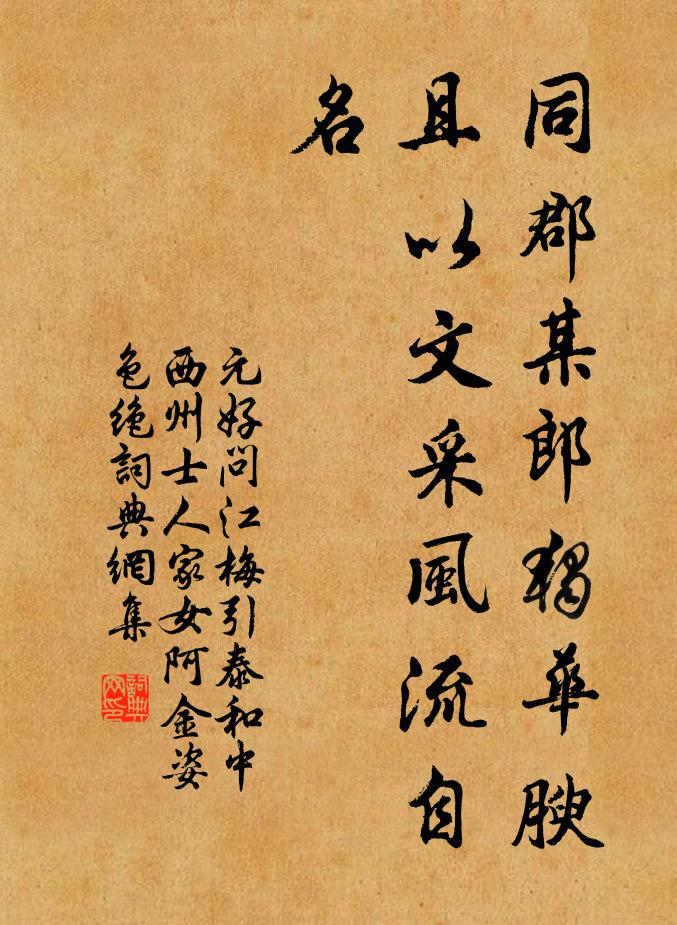 同郡某郎獨華腴
且以文采風流自
名
元好問江梅引泰和中
西州士人家女阿金姿
色绝詞典網集
詞典網印